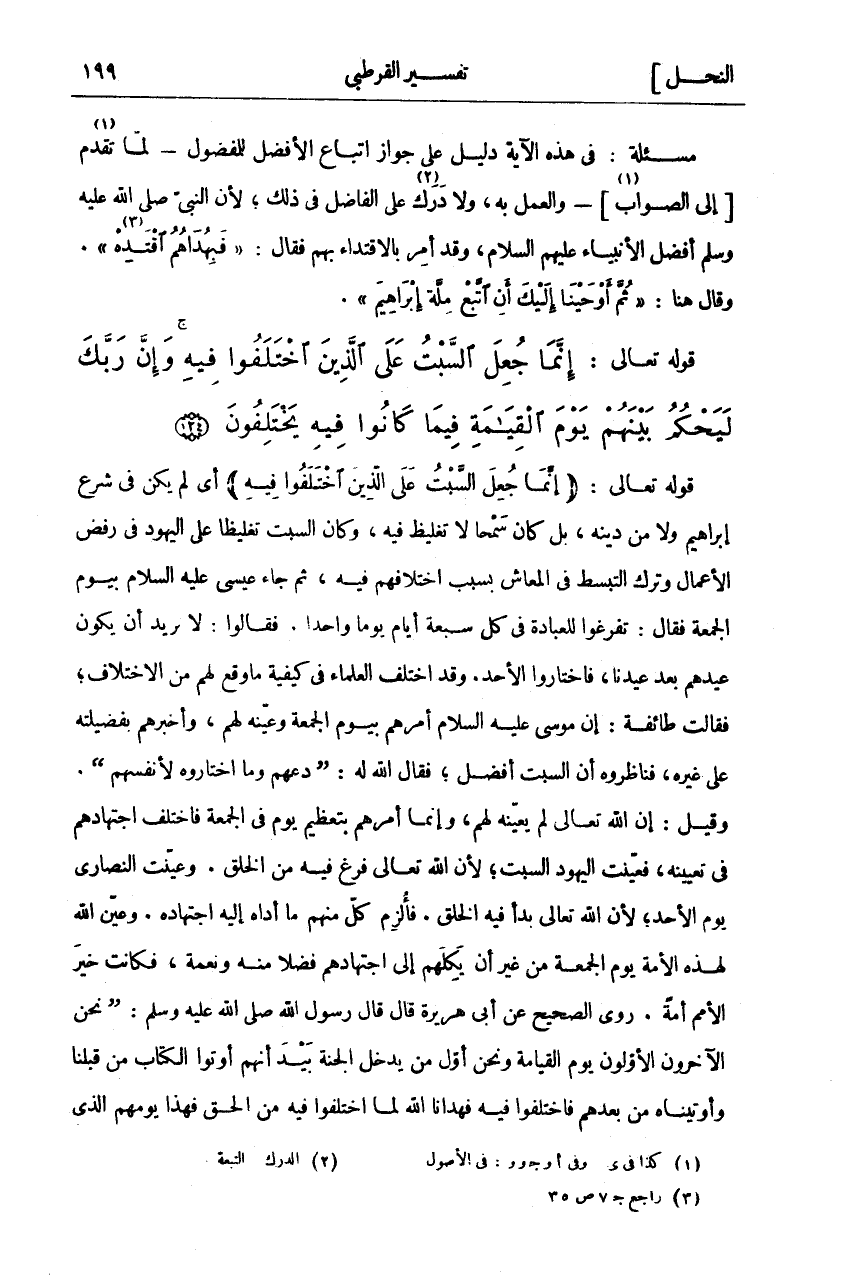 النحـل ] تفسـير القرطبى ١٩٩
مسـئلة : فى هذه الآية دليل على جواز اتباع الأفضل للفضول – لمّا تقدم (١)
[ إلى الصـواب ] (١) – والعمل به، ولا دَرَك (٢) على الفاضل فى ذلك ؛ لأن النبىّ صلى الله عليه
وسلم أفضل الأنبياء عليهم السلام، وقد أمِر بالاقتداء بهم فقال : « فَبِهُدَاهُمُ ٱقْتَدِهْ (٣) » .
وقال هنا : « ثُمَّ أَوْحَيْنَا إِلَيْكَ أَنِ ٱتَّبِعْ مِلَّةَ إِبْرَاهِيمَ » .
قوله تعـالى : إِنَّمَا جُعِلَ ٱلسَّبْتُ عَلَى ٱلَّذِينَ ٱخْتَلَفُوا فِيهِ ۚ وَإِنَّ رَبَّكَ
لَيَحْكُمُ بَيْنَهُمْ يَوْمَ ٱلْقِيَـٰمَةِ فِيمَا كَانُوا فِيهِ يَخْتَلِفُونَ ﴿١٢٤﴾
قوله تعـالى : ﴿ إِنَّمَا جُعِلَ السَّبْتُ عَلَى الَّذِينَ ٱخْتَلَفُوا فِيـهِ ﴾ أى لم يكن فى شرع
إبراهيم ولا من دينه ، بل كان سَمْحا لا تغليظ فيه ، وكان السبت تغليظا على اليهود فى رفض
الأعمال وترك التبسط فى المعاش بسبب اختلافهم فيـه ، ثم جاء عيسى عليه السلام بيـوم
الجمعة فقال : تفرغوا للعبادة فى كل سـبعة أيام يوما واحدا . فقـالوا : لا نريد أن يكون
عيدهم بعد عيدنا، فاختاروا الأحد. وقد اختلف العلماء فى كيفية ماوقع لهم من الاختلاف؛
فقالت طائفـة : إن موسى عليـه السلام أمرهم بيـوم الجمعة وعيّنه لهم ، وأخبرهم بفضيلته
على غيره، فناظروه أن السبت أفضـل ؛ فقال الله له : ” دعهم وما اختاروه لأنفسهم “ .
وقيـل : إن الله تعـالى لم يعيّنه لهم، وإنمـا أمرهم بتعظيم يوم فى الجمعة فاختلف اجتهادهم
فى تعيينه، فعيّنت اليهود السبت؛ لأن الله تعـالى فرغ فيـه من الخلق . وعيّنت النصارى
يوم الأحد؛ لأن الله تعالى بدأ فيه الخلق . فأُلزِم كلّ منهم ما أداه إليه اجتهاده . وعيّن الله
لهـذه الأمة يوم الجمعـة من غير أن يَكِلَهم إلى اجتهادهم فضلا منـه ونعمة ، فكانت خيرَ
الأمم أمةً . روى الصحيح عن أبى هريرة قال قال رسول الله صلى الله عليه وسلم : ” نحن
الآخرون الأوّلون يوم القيامة ونحن أوّل من يدخل الجنة بَيْـدَ أنهم أوتوا الكتاب من قبلنا
وأوتينـاه من بعدهم فاختلفوا فيـه فهدانا الله لمـا اختلفوا فيه من الحـق فهذا يومهم الذى
(١) كذا فى ى وفى أ و جـ و و : فى الأصول (٢) الدرك التبعة .
(٣) راجع جـ ٧ ص ٣٥